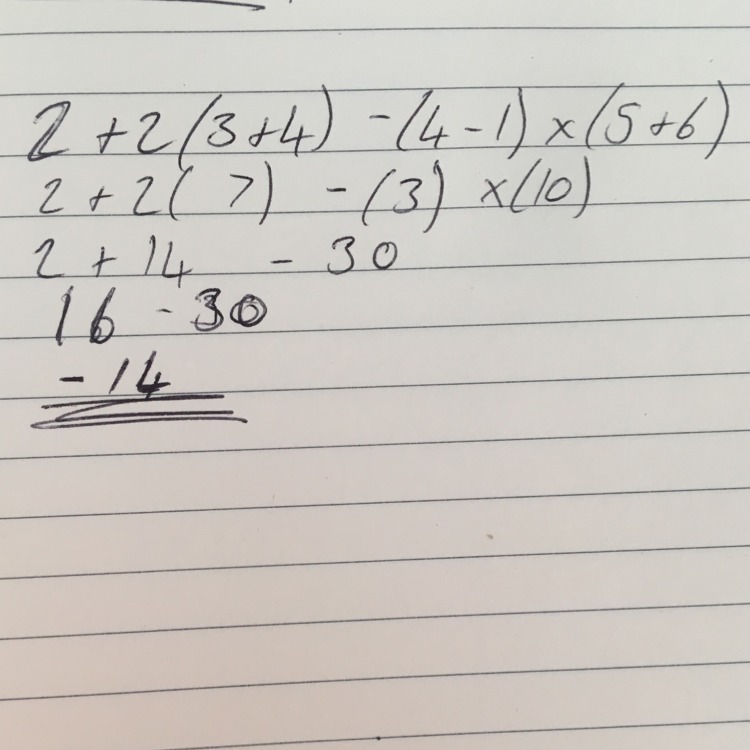 2 + 2(3+4) - (4-1) × (5+6)
2 + 2( 7) - (3) × (10)
2 + 14 - 30
16 - 30
- 14